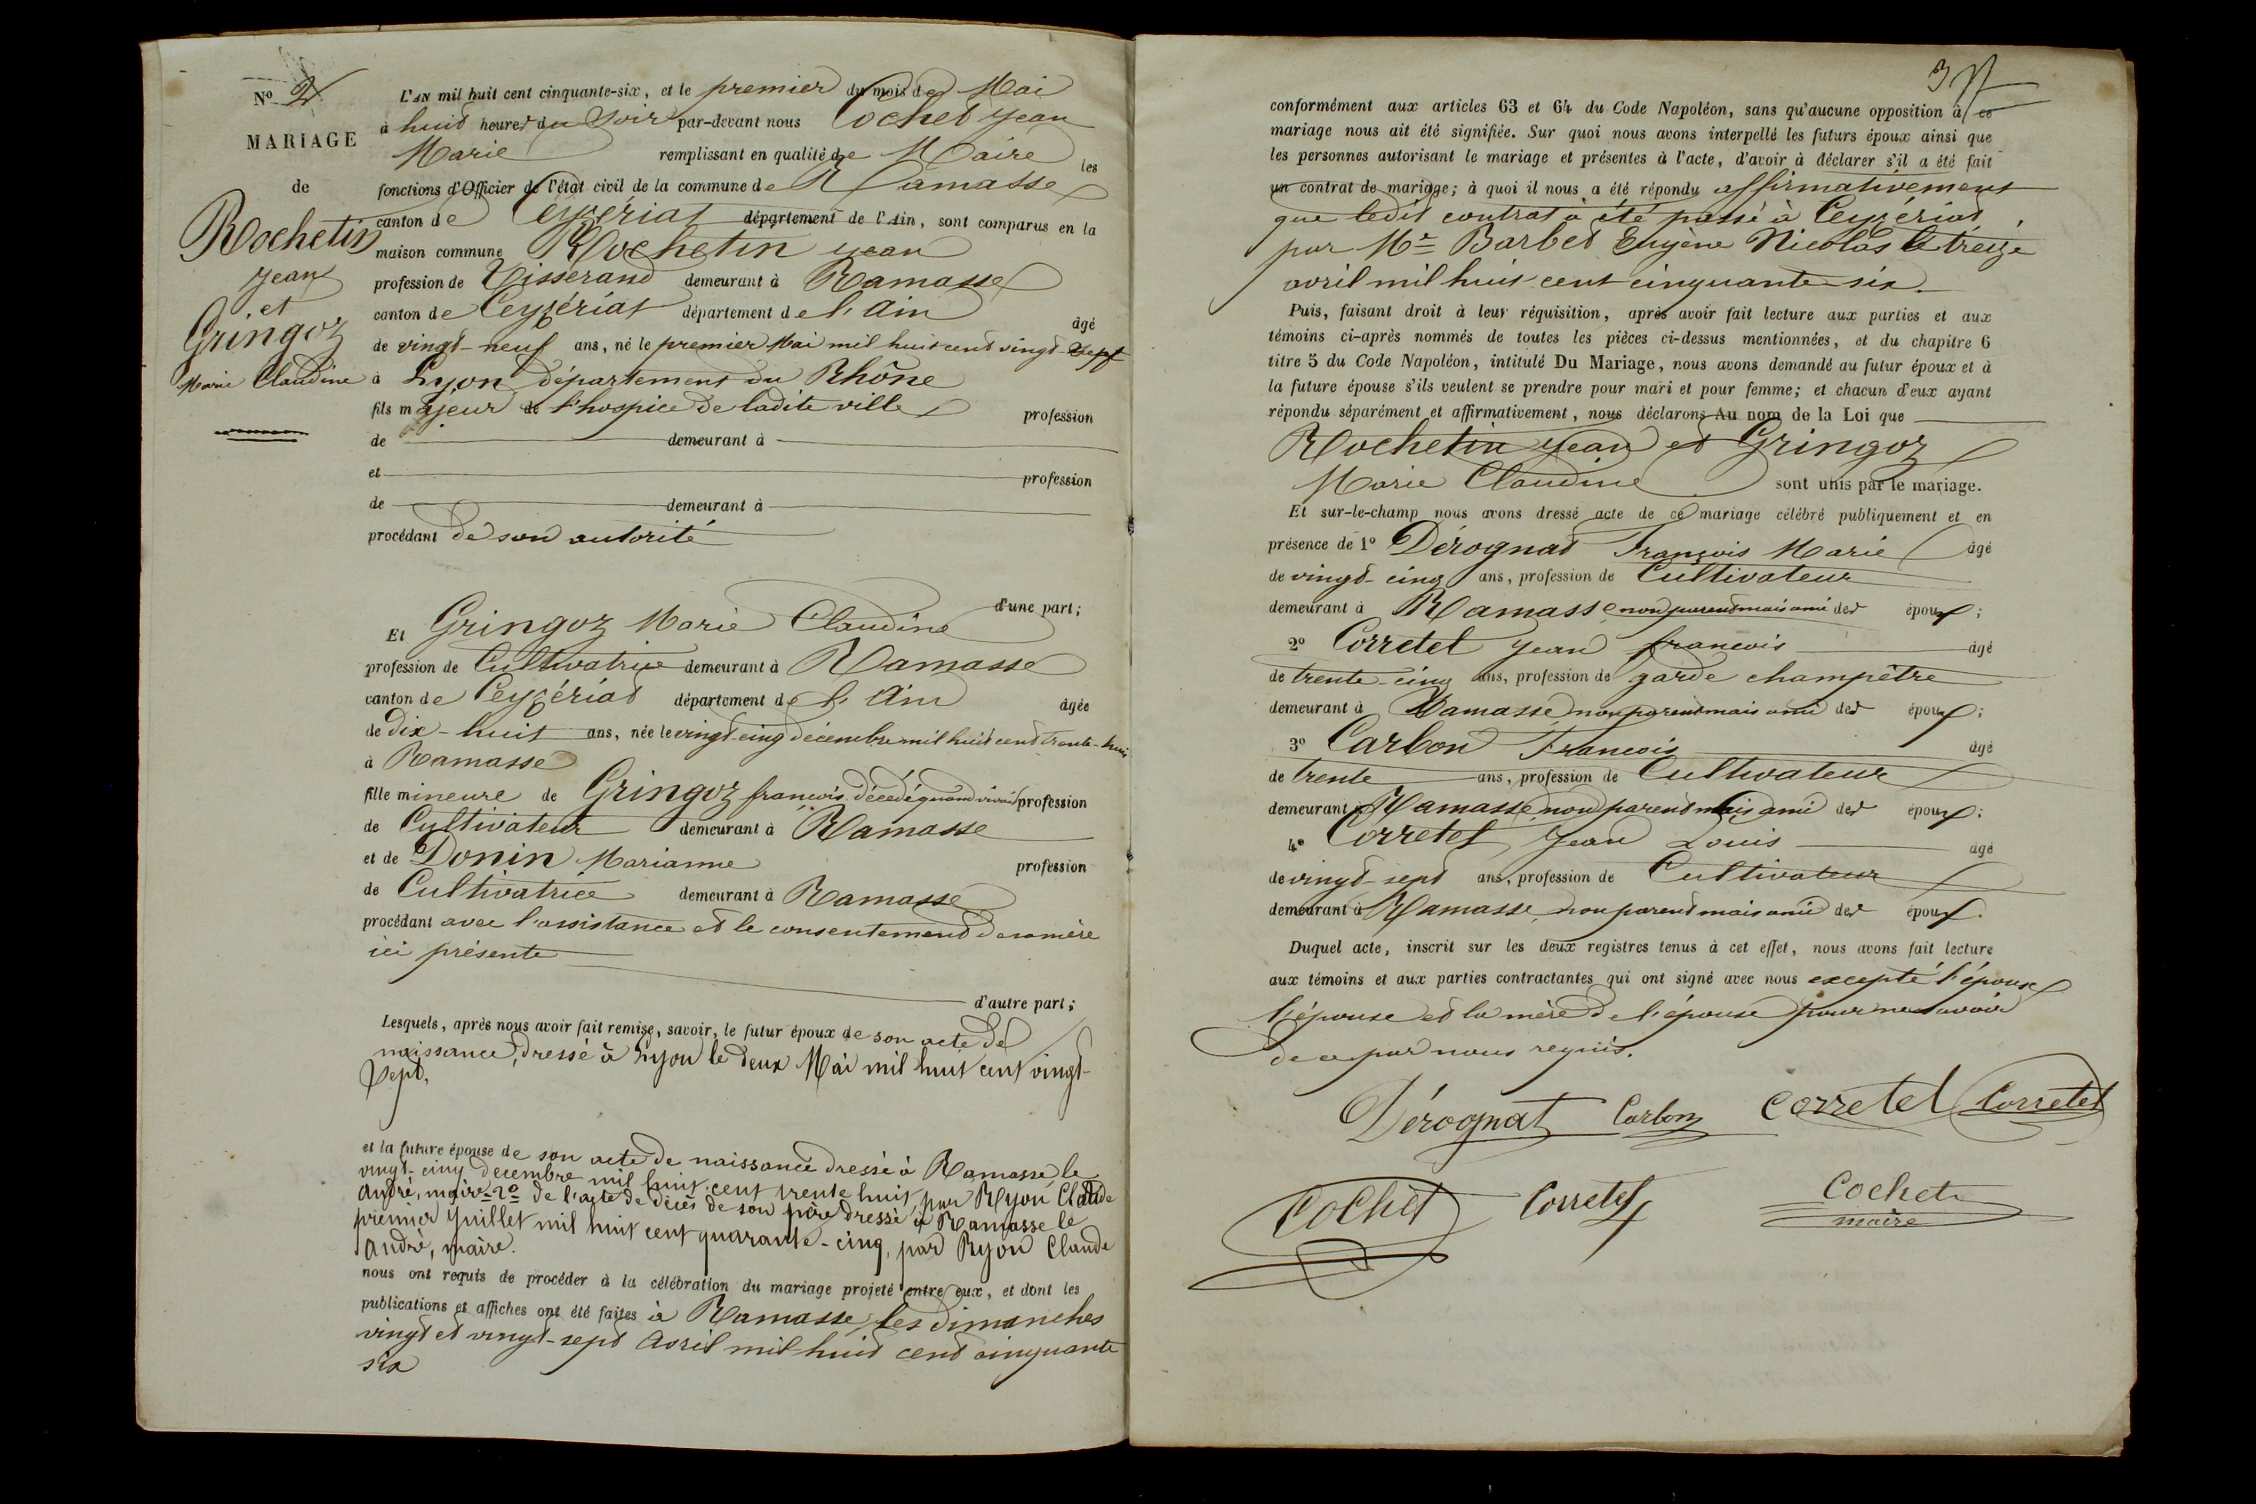 Nº 2
MARIAGE
de
Rochetin
Jean
et
Gringoz
Marie Claudine
L'AN mil huit cent cinquante-six, et le premier du mois de Mai
à huit heures du Soir par-devant nous Cochet Jean
Marie remplissant en qualité de Maire les
fonctions d'Officier de l'état civil de la commune de Ramasse
canton de Ceyzériat département de l'Ain, sont comparus en la
maison commune Rochetin Jean
profession de Tisserand demeurant à Ramasse
canton de Ceyzériat département de l'Ain âgé
de vingt-neuf ans, né le premier Mai mil huit cent vingt-sept
à Lyon département du Rhône
fils majeur de l'hospice de ladite ville profession
de demeurant à
et profession
de demeurant à
procédant de son autorité
d'une part;
Et Gringoz Marie Claudine
profession de Cultivatrice demeurant à Ramasse
canton de Ceyzériat département de l'Ain âgée
de dix-huit ans, née le vingt-cinq décembre mil huit cent trente-huit
à Ramasse
fille mineure de Gringoz françois, décédé quand vivait profession
de Cultivateur demeurant à Ramasse
et de Donin Marianne profession
de Cultivatrice demeurant à Ramasse
procédant avec l'assistance et le consentement de sa mère
ici présente
d'autre part;
Lesquels, après nous avoir fait remise, savoir, le futur époux de son acte de
naissance, dressé à Lyon le deux Mai mil huit cent vingt-
sept,
et la future épouse de son acte de naissance dressé à Ramasse, le
vingt-cinq décembre mil huit cent trente huit, par Ryon Claude
André, maire. 2º de l'acte de décès de son père dressé à Ramasse le
premier Juillet mil huit cent quarante-cinq, par Ryon Claude
André, maire.
nous ont requis de procéder à la célébration du mariage projeté entre eux, et dont les
publications et affiches ont été faites à Ramasse, les dimanches
vingt et vingt-sept avril mil huit cent cinquante
six
3
conformément aux articles 63 et 64 du Code Napoléon, sans qu'aucune opposition à ce
mariage nous ait été signifiée. Sur quoi nous avons interpellé les futurs époux ainsi que
les personnes autorisant le mariage et présentes à l'acte, d'avoir à déclarer s'il a été fait
un contrat de mariage; à quoi il nous a été répondu affirmativement
que ledit contrat à été passé à Ceyzériat,
par Me Barbet Eugène Nicolas le treize
avril mil huit cent cinquante-six.
Puis, faisant droit à leur réquisition, après avoir fait lecture aux parties et aux
témoins ci-après nommés de toutes les pièces ci-dessus mentionnées, et du chapitre 6
titre 5 du Code Napoléon, intitulé Du Mariage, nous avons demandé au futur époux et à
la future épouse s'ils veulent se prendre pour mari et pour femme; et chacun d'eux ayant
répondu séparément et affirmativement, nous déclarons Au nom de la Loi que
Rochetin Jean et Gringoz
Marie Claudine sont unis par le mariage.
Et sur-le-champ nous avons dressé acte de ce mariage célébré publiquement et en
présence de 1º Dérognat François Marie âgé
de vingt-cinq ans, profession de Cultivateur
demeurant à Ramasse, non parent mais ami des époux;
2º Corretel Jean françois âgé
de trente-cinq ans, profession de garde champêtre
demeurant à Ramasse, non parent mais ami des époux;
3º Carbon François âgé
de trente ans, profession de Cultivateur
demeurant à Ramasse, non parent mais ami des époux;
4º Corretel Jean Louis âgé
de vingt-sept ans, profession de Cultivateur
demeurant à Ramasse, non parent mais ami des époux.
Duquel acte, inscrit sur les deux registres tenus à cet effet, nous avons fait lecture
aux témoins et aux parties contractantes qui ont signé avec nous excepté l'époux
l'épouse et la mère de l'épouse pour ne savoir
de ce par nous requis.
Dérognat Carbon Corretel Corretel
Cochet Corretel Cochet
maire